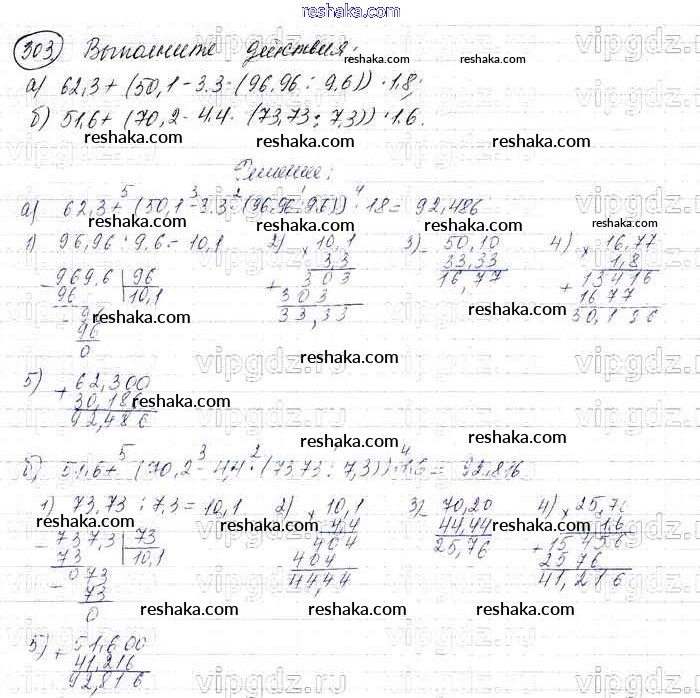 reshaka.com
303. Выполните действия:
reshaka.com reshaka.com
а) 62,3 + (50,1 - 3,3 · (96,96 : 9,6)) · 1,8;
б) 51,6 + (70,2 - 4,4 · (73,73 : 7,3)) · 1,6.
reshaka.com reshaka.com
Решение:
а) 62,3 +⁵ (50,1 -³ 3,3 ·² (96,96 :¹ 9,6)) ·⁴ 1,8 = 92,486
reshaka.com
1) 96,96 : 9,6 = 10,1 2) × 10,1 3) - 50,10 4) × 16,77
3,3 33,33 1,8
- 969,6 | 96 + 303 16,77 + 13416
96 10,1 303 1677
- 96 33,33 30,186
96
0
reshaka.com reshaka.com reshaka.com
5) + 62,300
30,186
92,486
reshaka.com
б) 51,6 +⁵ (70,2 -³ 4,4 ·² (73,73 : 7,3)) ·⁴ 1,6 = 92,816
reshaka.com
1) 73,73 : 7,3 = 10,1 2) × 10,1 3) - 70,20 4) × 25,76
reshaka.com reshaka.com reshaka.com
4,4 44,44 1,6
- 737,3 | 73 404 25,76 + 15456
73 10,1 404 2576
- 073 44,44 41,216
73
0
reshaka.com reshaka.com reshaka.com
5) + 51,600
41,216
92,816
reshaka.com reshaka.com
vipgdz.ru